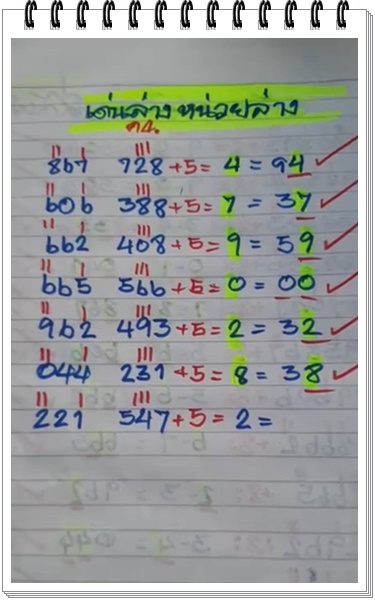 เด่นล่าง หน่วยล่าง
867 728 +5= 4 = 94
606 388 +5= 7 = 37
662 408 +5= 9 = 59
665 566 +5= 0 = 00
962 493 +5= 2 = 32
044 231 +5= 8 = 38
221 547 +5= 2 =